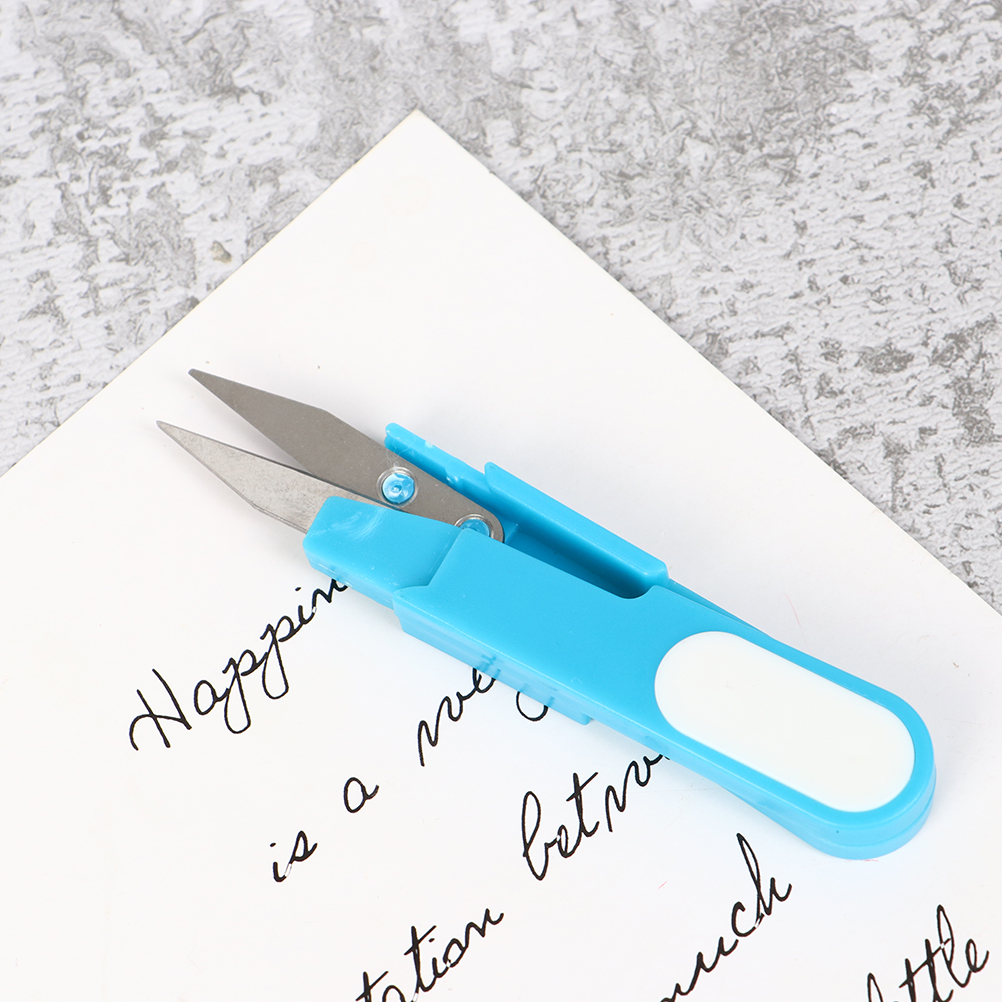 Happin
is a way
tation betw
much
little